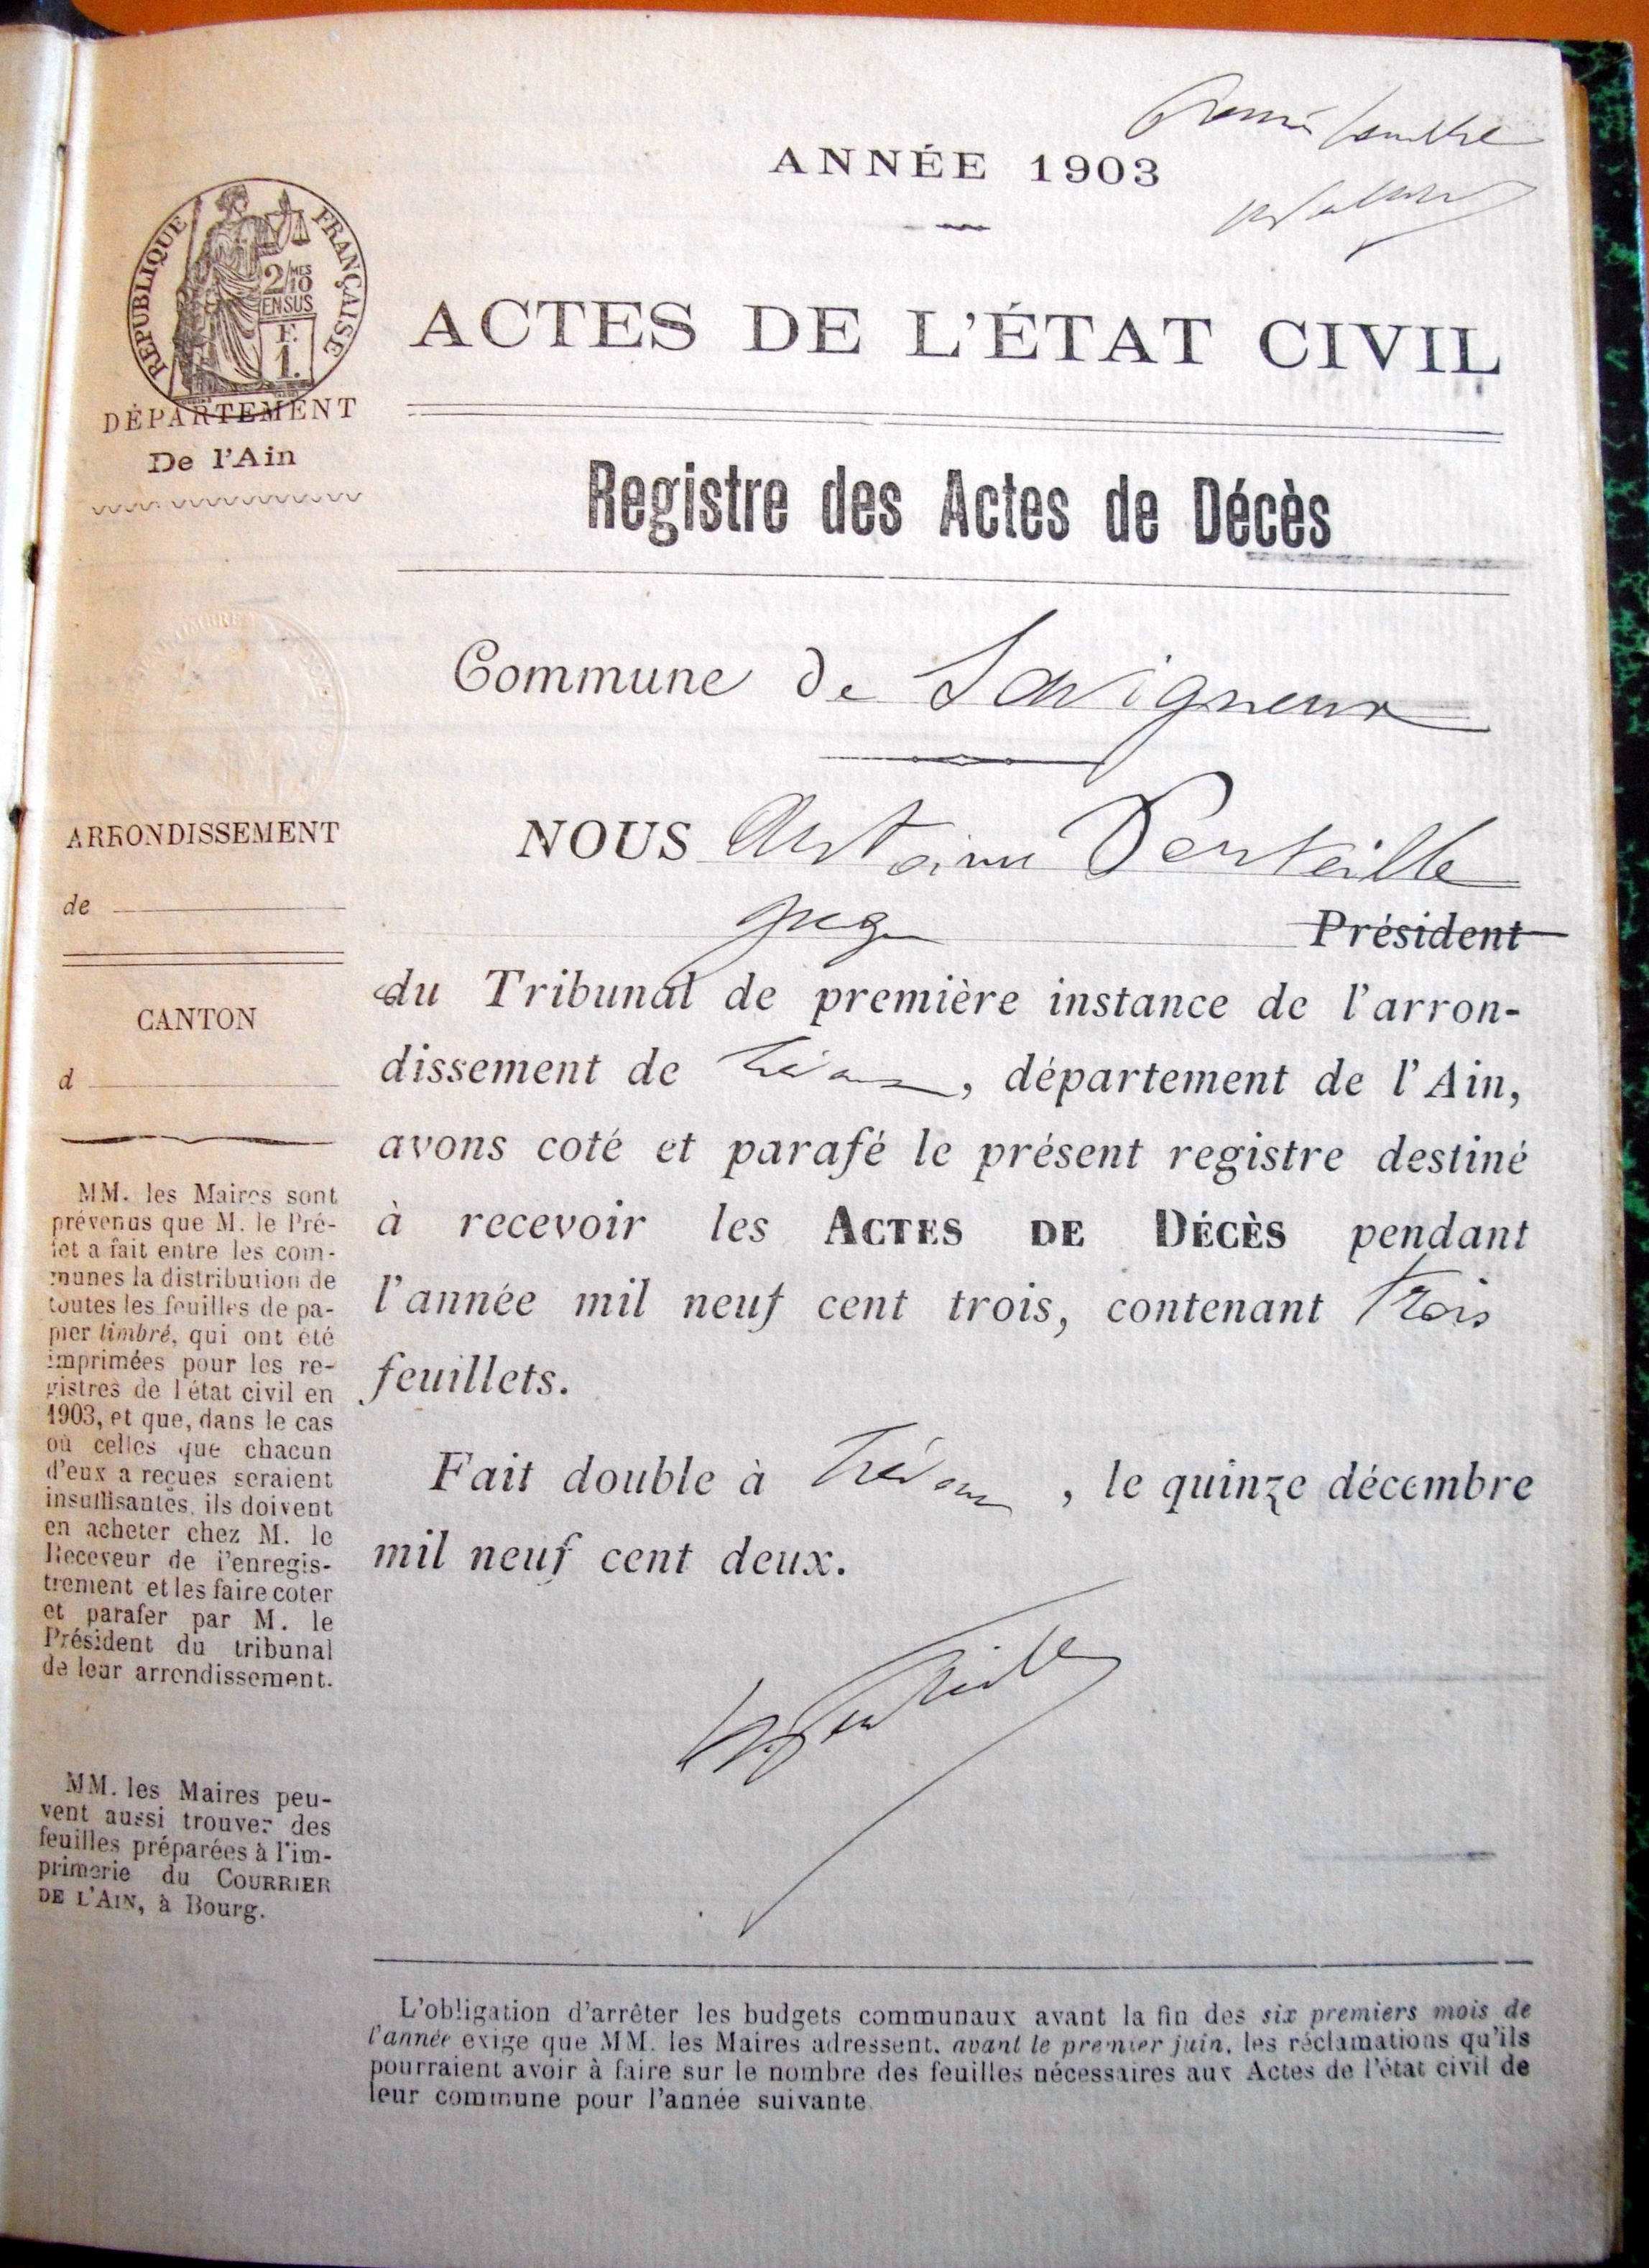 ANNÉE 1903
ACTES DE L'ÉTAT CIVIL
RÉPUBLIQUE FRANÇAISE
2/10MES
EN SUS
F.
1.
DÉPARTEMENT
De l'Ain
Registre des Actes de Décès
Commune de Savigneux
NOUS Antoine Penteille
juge Président
du Tribunal de première instance de l'arron-
dissement de Trévoux, département de l'Ain,
avons coté et parafé le présent registre destiné
à recevoir les ACTES DE DÉCÈS pendant
l'année mil neuf cent trois, contenant trois
feuillets.
Fait double à Trévoux, le quinze décembre
mil neuf cent deux.
ARRONDISSEMENT
de
CANTON
d
MM. les Maires sont
prévenus que M. le Pré-
fet a fait entre les com-
munes la distribution de
toutes les feuilles de pa-
pier timbré, qui ont été
imprimées pour les re-
gistres de l'état civil en
1903, et que, dans le cas
où celles que chacun
d'eux a reçues seraient
insuffisantes, ils doivent
en acheter chez M. le
Receveur de l'enregis-
trement et les faire coter
et parafer par M. le
Président du tribunal
de leur arrondissement.
MM. les Maires peu-
vent aussi trouver des
feuilles préparées à l'im-
primerie du COURRIER
DE L'AIN, à Bourg.
L'obligation d'arrêter les budgets communaux avant la fin des six premiers mois de
l'année exige que MM. les Maires adressent, avant le premier juin, les réclamations qu'ils
pourraient avoir à faire sur le nombre des feuilles nécessaires aux Actes de l'état civil de
leur commune pour l'année suivante.